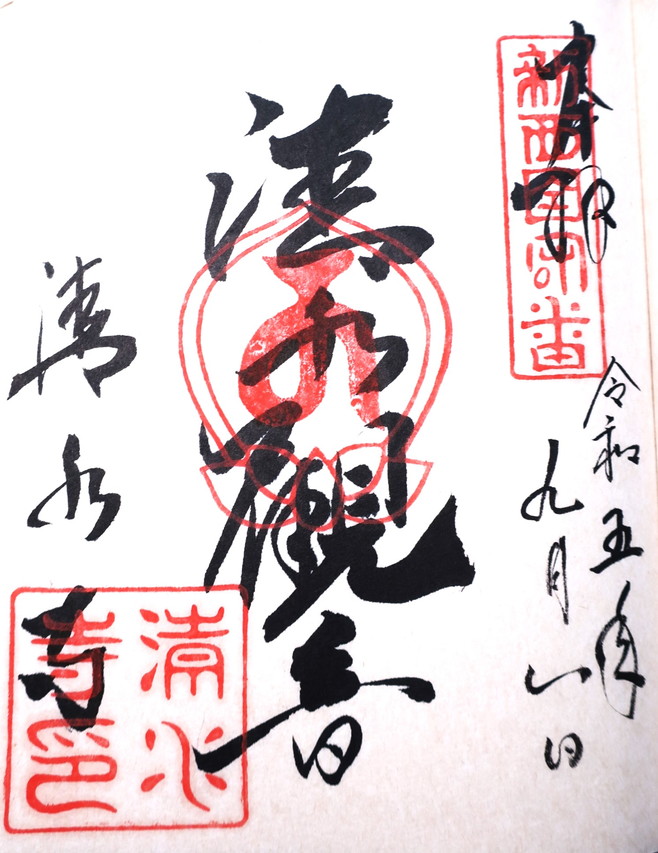 奉拝
新西国客番
令和五年
九月 日
清水観音
清水寺
清水寺印